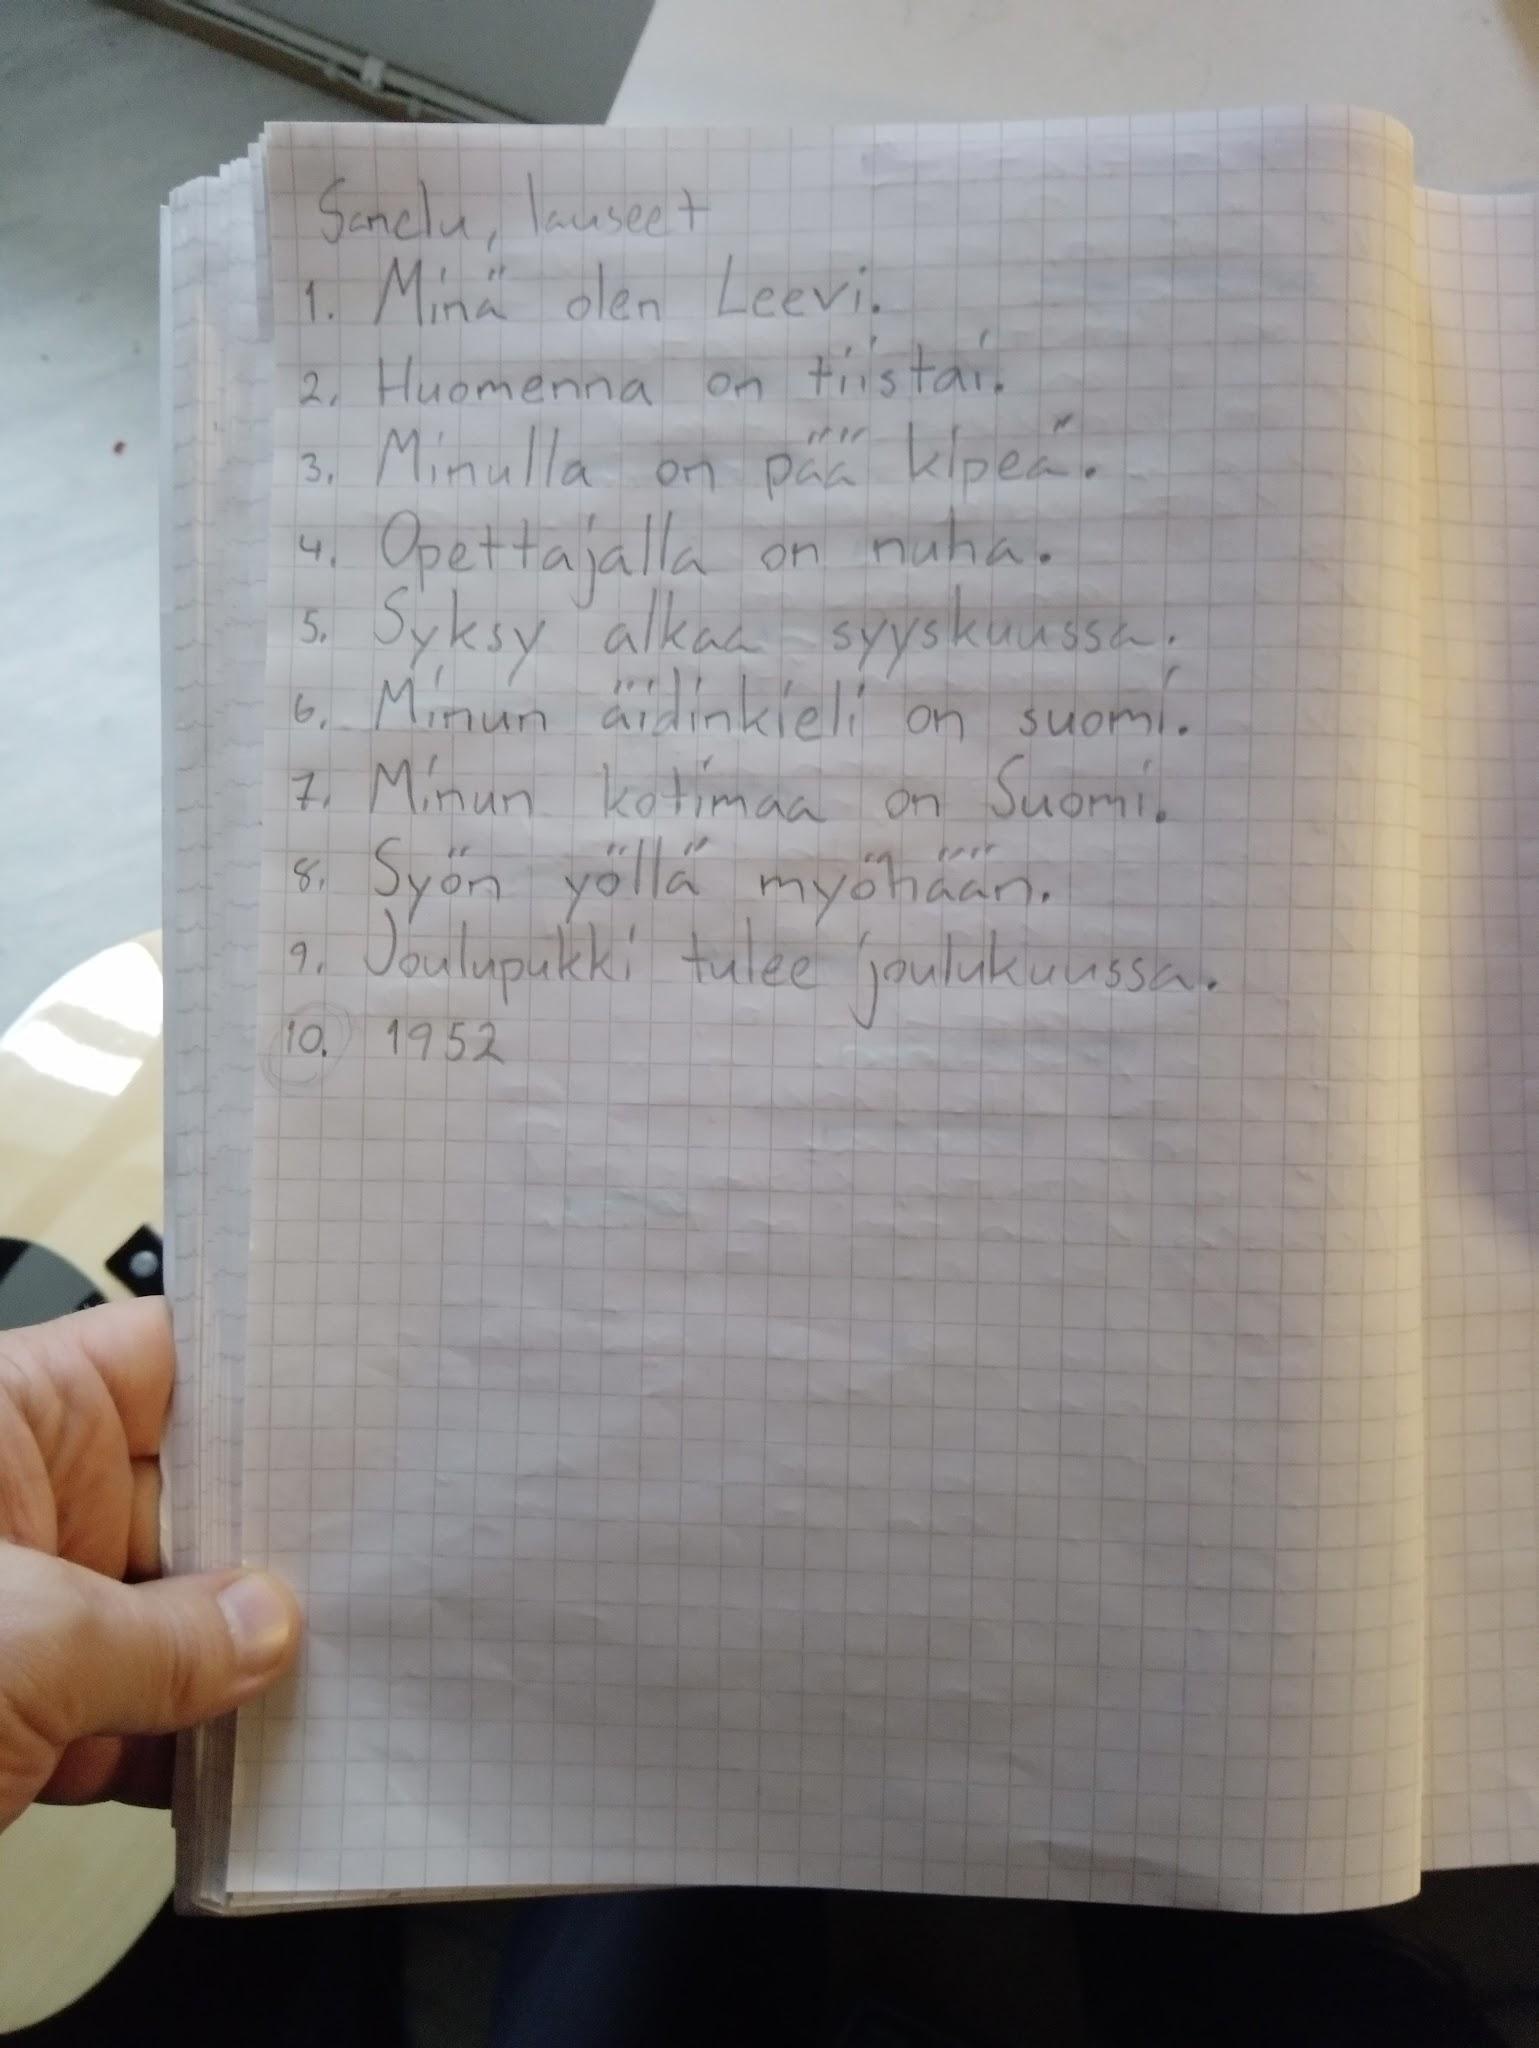 Sanelu, lauseet
1. Minä olen Leevi.
2. Huomenna on tiistai.
3. Minulla on pää kipeä.
4. Opettajalla on nuha.
5. Syksy alkaa syyskuussa.
6. Minun äidinkieli on suomi.
7. Minun kotimaa on Suomi.
8. Syön yöllä myöhään.
9. Joulupukki tulee joulukuussa.
10. 1952